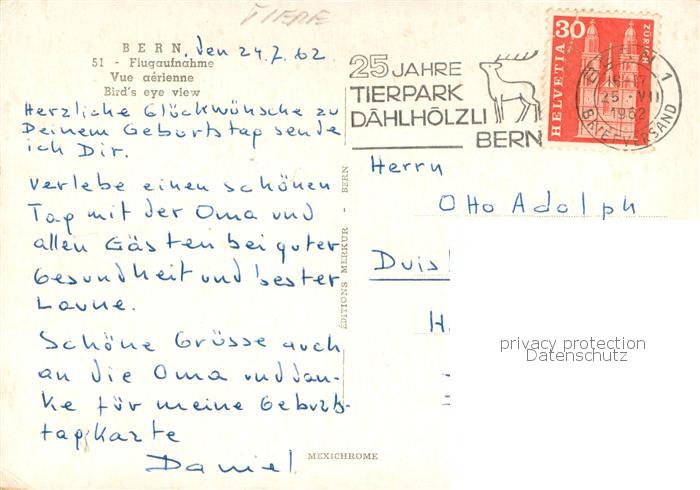 TIERE
BERN, den 24.7.62
51 - Flugaufnahme
Vue aérienne
Bird's eye view
Herzliche Glückwünsche zu
Deinem Geburtstag sende
ich Dir.
Verlebe einen schönen
Tag mit der Oma und
allen Gästen bei guter
Gesundheit und bester
Laune.
Schöne Grüsse auch
an die Oma und dan-
ke für meine Geburts-
tagkarte
Daniel
ÉDITIONS MERKUR - BERN
MEXICHROME
25 JAHRE
TIERPARK
DÄHLHÖLZLI
BERN
30
HELVETIA
ZÜRICH
1
25.VII
1962
BRIEFVERSAND
Herrn
Otto Adolph
Duis
H
privacy protection
Datenschutz